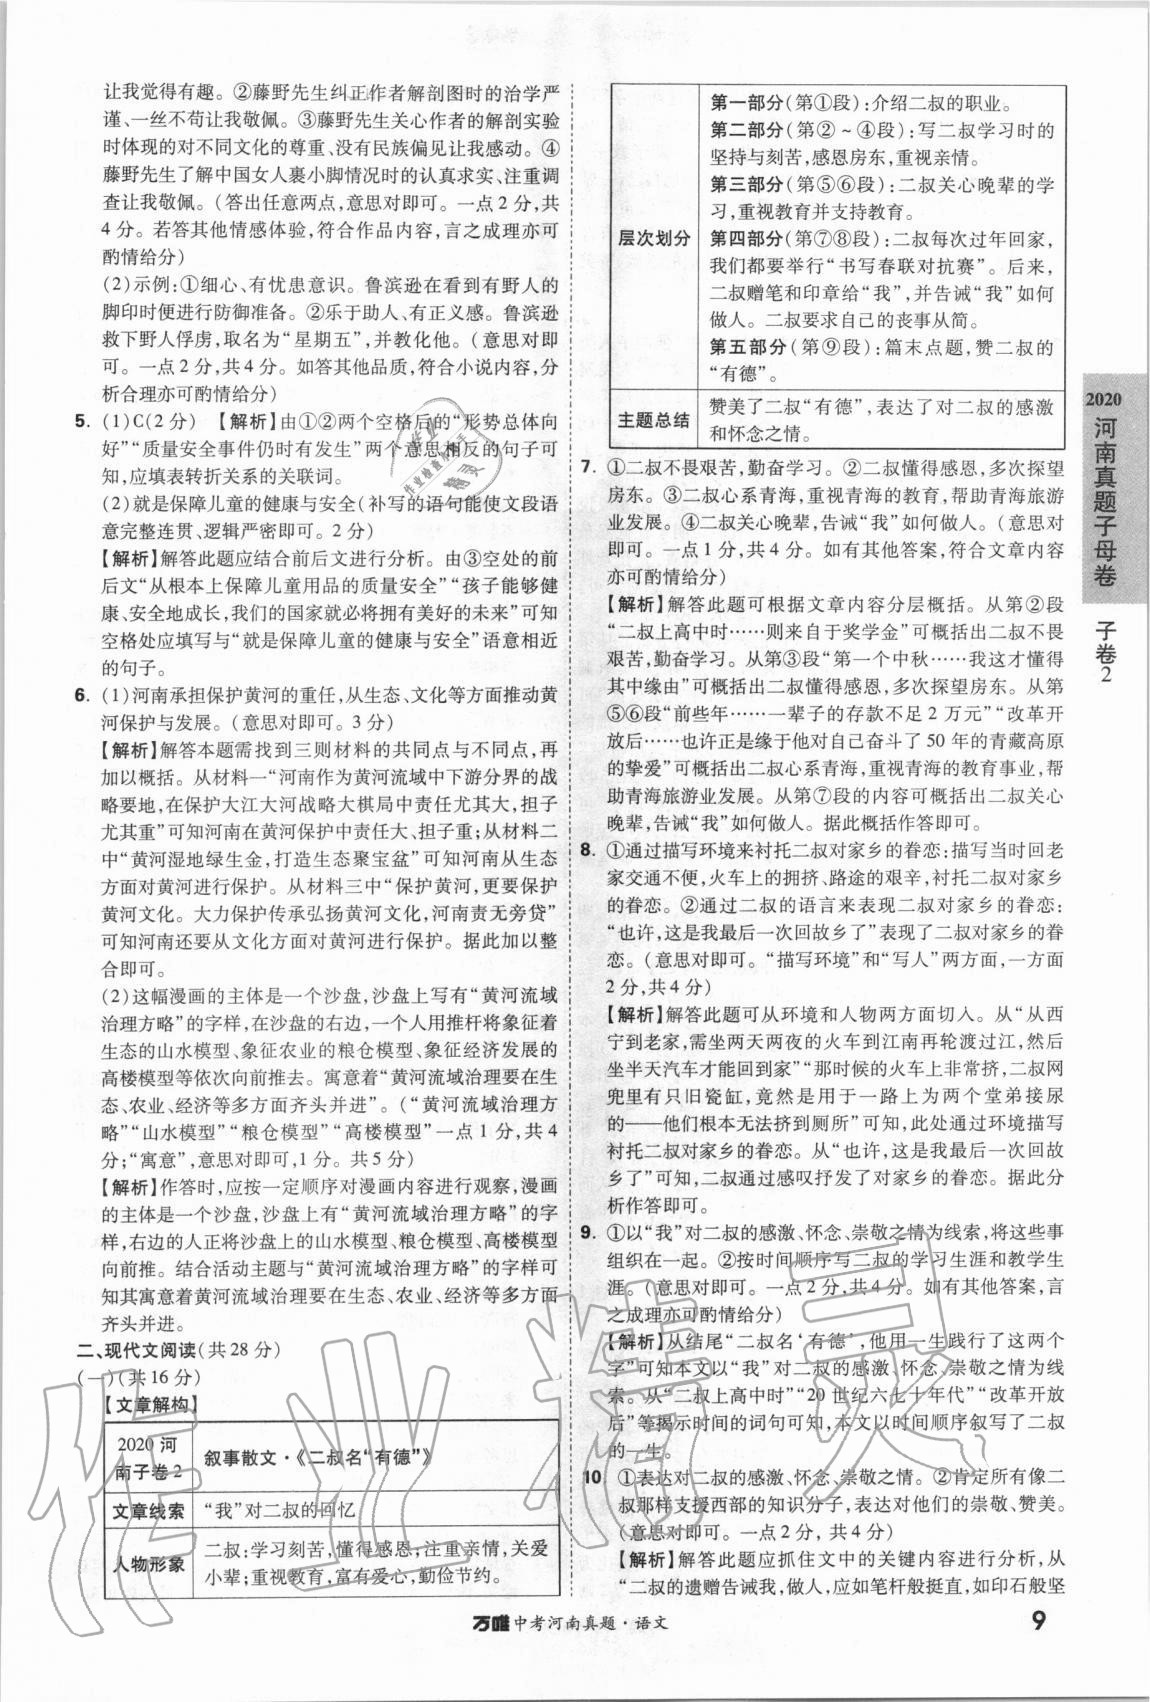 让我觉得有趣。②藤野先生纠正作者解剖图时的治学严
谨、一丝不苟让我敬佩。③藤野先生关心作者的解剖实验
时体现的对不同文化的尊重、没有民族偏见让我感动。④
藤野先生了解中国女人裹小脚情况时的认真求实、注重调
查让我敬佩。(答出任意两点,意思对即可。一点2分,共
4分。若答其他情感体验,符合作品内容,言之成理亦可
酌情给分)
(2)示例:①细心、有忧患意识。鲁滨逊在看到有野人的
脚印时便进行防御准备。②乐于助人、有正义感。鲁滨逊
救下野人俘虏,取名为“星期五”,并教化他。(意思对即
可。一点2分,共4分。如答其他品质,符合小说内容,分
析合理亦可酌情给分)
5. (1)C(2分) 【解析】由①②两个空格后的“形势总体向
好”“质量安全事件仍时有发生”两个意思相反的句子可
知,应填表转折关系的关联词。
(2)就是保障儿童的健康与安全(补写的语句能使文段语
意完整连贯、逻辑严密即可。2分)
【解析】解答此题应结合前后文进行分析。由③空处的前
后文“从根本上保障儿童用品的质量安全”“孩子能够健
康、安全地成长,我们的国家就必将拥有美好的未来”可知
空格处应填写与“就是保障儿童的健康与安全”语意相近
的句子。
6. (1)河南承担保护黄河的重任,从生态、文化等方面推动黄
河保护与发展。(意思对即可。3分)
【解析】解答本题需找到三则材料的共同点与不同点,再
加以概括。从材料一“河南作为黄河流域中下游分界的战
略要地,在保护大江大河战略大棋局中责任尤其大,担子
尤其重”可知河南在黄河保护中责任大、担子重;从材料二
中“黄河湿地绿生金,打造生态聚宝盆”可知河南从生态
方面对黄河进行保护。从材料三中“保护黄河,更要保护
黄河文化。大力保护传承弘扬黄河文化,河南责无旁贷”
可知河南还要从文化方面对黄河进行保护。据此加以整
合即可。
(2)这幅漫画的主体是一个沙盘,沙盘上写有“黄河流域
治理方略”的字样,在沙盘的右边,一个人用推杆将象征着
生态的山水模型、象征农业的粮仓模型、象征经济发展的
高楼模型等依次向前推去。寓意着“黄河流域治理要在生
态、农业、经济等多方面齐头并进”。(“黄河流域治理方
略”“山水模型”“粮仓模型”“高楼模型”一点1分,共4
分;“寓意”,意思对即可,1分。共5分)
【解析】作答时,应按一定顺序对漫画内容进行观察,漫画
的主体是一个沙盘,沙盘上有“黄河流域治理方略”的字
样,右边的人正将沙盘上的山水模型、粮仓模型、高楼模型
向前推。结合活动主题与“黄河流域治理方略”的字样可
知其寓意着黄河流域治理要在生态、农业、经济等多方面
齐头并进。
二、现代文阅读(共28分)
(一)(共16分)
【文章解构】
2020河
南子卷2
叙事散文·《二叔名“有德”》
文章线索
“我”对二叔的回忆
人物形象
二叔:学习刻苦,懂得感恩;注重亲情,关爱
小辈;重视教育,富有爱心,勤俭节约。
层次划分
第一部分(第①段):介绍二叔的职业。
第二部分(第②~④段):写二叔学习时的
坚持与刻苦,感恩房东,重视亲情。
第三部分(第⑤⑥段):二叔关心晚辈的学
习,重视教育并支持教育。
第四部分(第⑦⑧段):二叔每次过年回家,
我们都要举行“书写春联对抗赛”。后来,
二叔赠笔和印章给“我”,并告诫“我”如何
做人。二叔要求自己的丧事从简。
第五部分(第⑨段):篇末点题,赞二叔的
“有德”。
主题总结
赞美了二叔“有德”,表达了对二叔的感激
和怀念之情。
7. ①二叔不畏艰苦,勤奋学习。②二叔懂得感恩,多次探望
房东。③二叔心系青海,重视青海的教育,帮助青海旅游
业发展。④二叔关心晚辈,告诫“我”如何做人。(意思对
即可。一点1分,共4分。如有其他答案,符合文章内容
亦可酌情给分)
【解析】解答此题可根据文章内容分层概括。从第②段
“二叔上高中时……则来自于奖学金”可概括出二叔不畏
艰苦,勤奋学习。从第③段“第一个中秋……我这才懂得
其中缘由”可概括出二叔懂得感恩,多次探望房东。从第
⑤⑥段“前些年……一辈子的存款不足2万元”“改革开
放后……也许正是缘于他对自己奋斗了50年的青藏高原
的挚爱”可概括出二叔心系青海,重视青海的教育事业,帮
助青海旅游业发展。从第⑦段的内容可概括出二叔关心
晚辈,告诫“我”如何做人。据此概括作答即可。
8. ①通过描写环境来衬托二叔对家乡的眷恋:描写当时回老
家交通不便,火车上的拥挤、路途的艰辛,衬托二叔对家乡
的眷恋。②通过二叔的语言来表现二叔对家乡的眷恋:
“也许,这是我最后一次回故乡了”表现了二叔对家乡的眷
恋。(意思对即可。“描写环境”和“写人”两方面,一方面
2分,共4分)
【解析】解答此题可从环境和人物两方面切入。从“从西
宁到老家,需坐两天两夜的火车到江南再轮渡过江,然后
坐半天汽车才能回到家”“那时候的火车上非常挤,二叔网
兜里有只旧瓷缸,竟然是用于一路上为两个堂弟接尿
的——他们根本无法挤到厕所”可知,此处通过环境描写
衬托二叔对家乡的眷恋。从“也许,这是我最后一次回故
乡了”可知,二叔通过感叹抒发了对家乡的眷恋。据此分
析作答即可。
9. ①以“我”对二叔的感激、怀念、崇敬之情为线索,将这些事
组织在一起。②按时间顺序写二叔的学习生涯和教学生
涯。(意思对即可。一点2分,共4分。如有其他答案,言
之成理亦可酌情给分)
【解析】从结尾“二叔名‘有德’,他用一生践行了这两个
字”可知本文以“我”对二叔的感激、怀念、崇敬之情为线
索。从“二叔上高中时”“20世纪六七十年代”“改革开放
后”等揭示时间的词句可知,本文以时间顺序叙写了二叔
的一生。
10. ①表达对二叔的感激、怀念、崇敬之情。②肯定所有像二
叔那样支援西部的知识分子,表达对他们的崇敬、赞美。
(意思对即可。一点2分,共4分)
【解析】解答此题应抓住文中的关键内容进行分析,从
“二叔的遗赠告诫我,做人,应如笔杆般挺直,如印石般坚
2020
河南真题子母卷
子卷2
万唯中考河南真题·语文
9
作业精灵